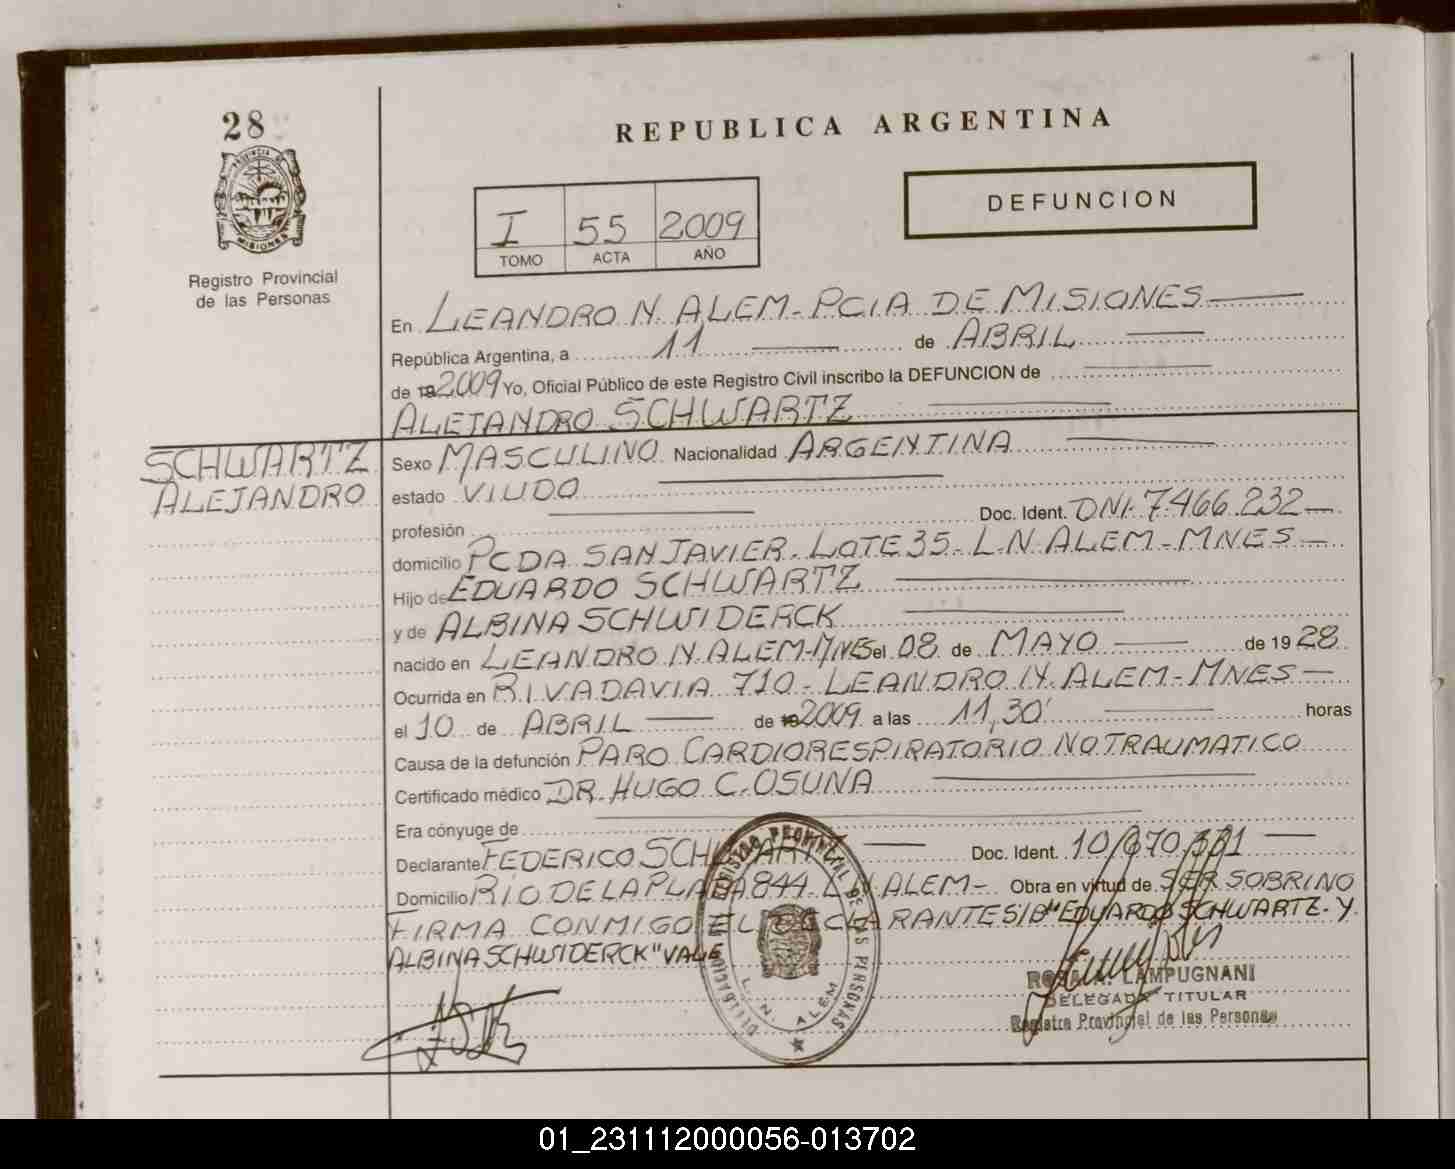 28
PROVINCIA DE
MISIONES
Registro Provincial
de las Personas
REPUBLICA ARGENTINA
I 55 2009
TOMO ACTA AÑO
DEFUNCION
En LEANDRO N. ALEM - PCIA DE MISIONES
República Argentina, a 11 de ABRIL
de 19 2009 Yo, Oficial Público de este Registro Civil inscribo la DEFUNCION de
ALEJANDRO SCHWARTZ
SCHWARTZ
ALEJANDRO
Sexo MASCULINO Nacionalidad ARGENTINA
estado VIUDO
profesión Doc. Ident. DNI. 7.466.232
domicilio PCDA SAN JAVIER - LOTE 35 - L.N. ALEM - MNES
Hijo de EDUARDO SCHWARTZ
y de ALBINA SCHWIDERCK
nacido en LEANDRO N. ALEM - MNES el 08 de MAYO de 19 28
Ocurrida en RIVADAVIA 710 - LEANDRO N. ALEM - MNES
el 10 de ABRIL de 19 2009 a las 11,30' horas
Causa de la defunción PARO CARDIORESPIRATORIO NO TRAUMATICO
Certificado médico DR. HUGO C. OSUNA
Era cónyuge de
Declarante FEDERICO SCHWARTZ Doc. Ident.
Domicilio RIO DE LA PLATA 844 - L.N. ALEM - Obra en virtud de SER SOBRINO
FIRMA CONMIGO EL DECLARANTE S/B "EDUARDO SCHWARTZ - Y
ALBINA SCHWIDERCK" VALE
DELEGACION REGISTRO PROVINCIAL DE LAS PERSONAS
L. N. ALEM
LAMPUGNANI
DELEGADA TITULAR
Registro Provincial de las Personas
01_231112000056-013702